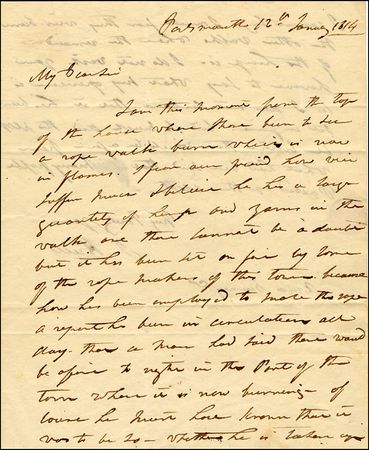 Portsmouth 12th Jany 1814
My Dear Sir
I am this moment from the top
of the house where I have been to see
a rope walk burn which is now
in flames I fear our friend how will
suffer much I believe he has a large
quantity of hemp and yarns in the
walk one there cannot be a doubt
but it has been set on fire by some
of the rope makers of this town because
how has been employed to make the rope
a report has been in circulation all
day. that a man had said there would
be a fire to night in this Part of the
town where it is now burning - of
course he must have known that it
was to be so - whether he is taken up